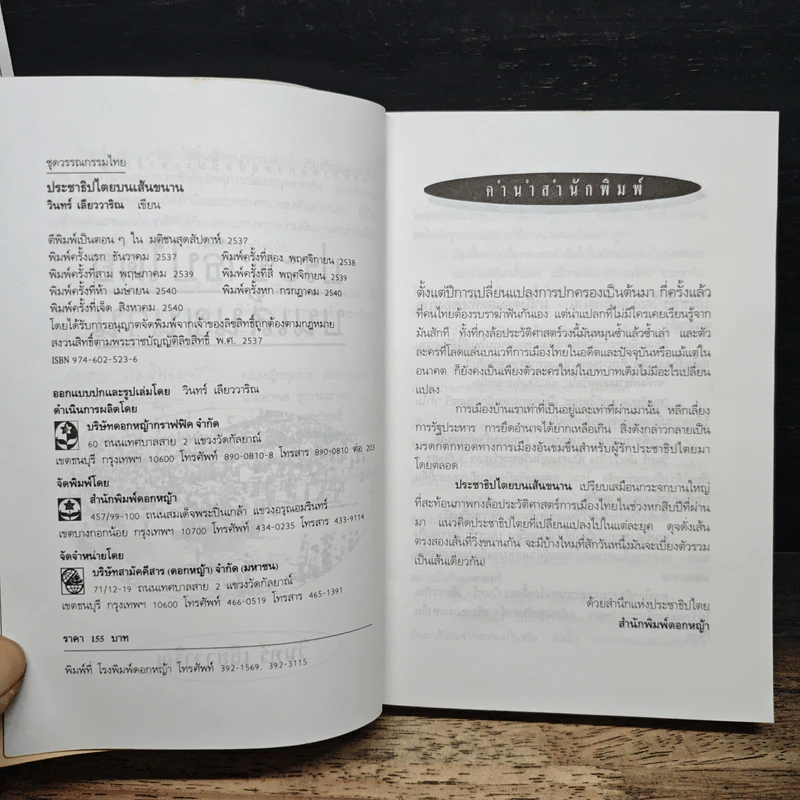 ชุดวรรณกรรมไทย
ประชาธิปไตยบนเส้นขนาน
วินทร์ เลียววาริณ เขียน
ตีพิมพ์เป็นตอน ๆ ใน มติชนสุดสัปดาห์ 2537
พิมพ์ครั้งแรก ธันวาคม 2537 พิมพ์ครั้งที่สอง พฤศจิกายน 2538
พิมพ์ครั้งที่สาม พฤษภาคม 2539 พิมพ์ครั้งที่สี่ พฤศจิกายน 2539
พิมพ์ครั้งที่ห้า เมษายน 2540 พิมพ์ครั้งที่หก กรกฎาคม 2540
พิมพ์ครั้งที่เจ็ด สิงหาคม 2540
โดยได้รับการอนุญาตจัดพิมพ์จากเจ้าของลิขสิทธิ์ถูกต้องตามกฎหมาย
สงวนลิขสิทธิ์ตามพระราชบัญญัติลิขสิทธิ์ พ.ศ. 2537
ISBN 974-602-523-6
ออกแบบปกและรูปเล่มโดย วินทร์ เลียววาริณ
ดำเนินการผลิตโดย
บริษัทดอกหญ้ากราฟฟิค จำกัด
60 ถนนเทศบาลสาย 2 แขวงวัดกัลยาณ์
เขตธนบุรี กรุงเทพฯ 10600 โทรศัพท์ 890-0810-8 โทรสาร 890-0810 ต่อ 203
จัดพิมพ์โดย
สำนักพิมพ์ดอกหญ้า
457/99-100 ถนนสมเด็จพระปิ่นเกล้า แขวงอรุณอมรินทร์
เขตบางกอกน้อย กรุงเทพฯ 10700 โทรศัพท์ 434-0235 โทรสาร 433-9114
จัดจำหน่ายโดย
บริษัทสามัคคีสาร (ดอกหญ้า) จำกัด (มหาชน)
71/12-19 ถนนเทศบาลสาย 2 แขวงวัดกัลยาณ์
เขตธนบุรี กรุงเทพฯ 10600 โทรศัพท์ 466-0519 โทรสาร 465-1391
ราคา 155 บาท
พิมพ์ที่ โรงพิมพ์ดอกหญ้า โทรศัพท์ 392-1569, 392-3115
คำนำสำนักพิมพ์
ตั้งแต่ปีการเปลี่ยนแปลงการปกครองเป็นต้นมา กี่ครั้งแล้ว
ที่คนไทยต้องรบราฆ่าฟันกันเอง แต่น่าแปลกที่ไม่มีใครเคยเรียนรู้จาก
มันสักที ทั้งที่กงล้อประวัติศาสตร์วงนี้มันหมุนซ้ำแล้วซ้ำเล่า และตัว
ละครที่โลดแล่นบนเวทีการเมืองไทยในอดีตและปัจจุบันหรือแม้แต่ใน
อนาคต ก็ยังคงเป็นเพียงตัวละครใหม่ในบทบาทเดิมไม่มีอะไรเปลี่ยน
แปลง
การเมืองบ้านเราเท่าที่เป็นอยู่และเท่าที่ผ่านมานั้น หลีกเลี่ยง
การรัฐประหาร การยึดอำนาจได้ยากเหลือเกิน สิ่งดังกล่าวกลายเป็น
มรดกตกทอดทางการเมืองอันขมขื่นสำหรับผู้รักประชาธิปไตยมา
โดยตลอด
ประชาธิปไตยบนเส้นขนาน เปรียบเสมือนกระจกบานใหญ่
ที่สะท้อนภาพกงล้อประวัติศาสตร์การเมืองไทยในช่วงหกสิบปีที่ผ่าน
มา แนวคิดประชาธิปไตยที่เปลี่ยนแปลงไปในแต่ละยุค ดุจดั่งเส้น
ตรงสองเส้นที่วิ่งขนานกัน จะมีบ้างไหมที่สักวันหนึ่งมันจะเบี่ยงตัวรวม
เป็นเส้นเดียวกัน!
ด้วยสำนึกแห่งประชาธิปไตย
สำนักพิมพ์ดอกหญ้า